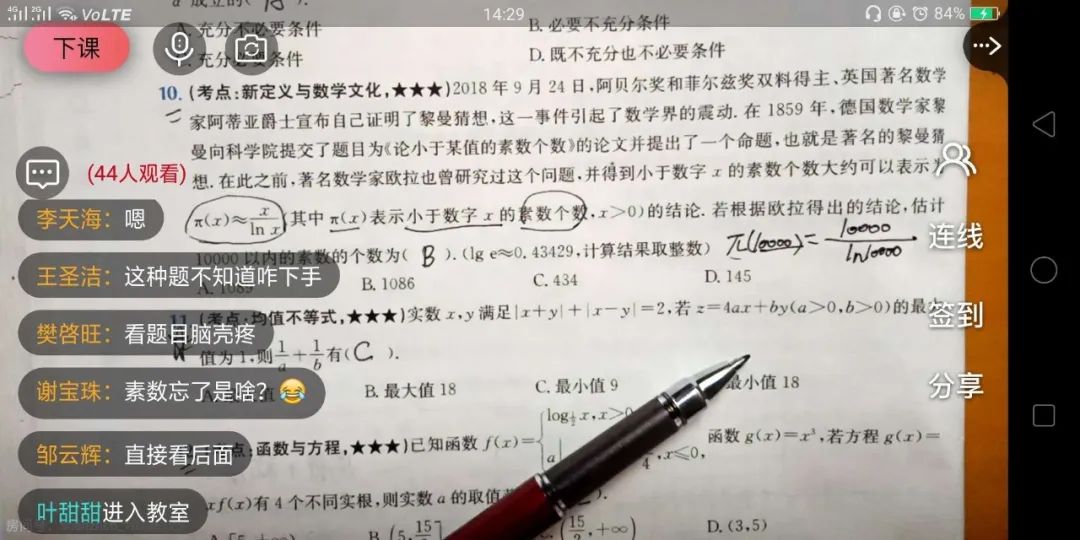 4G 2G VoLTE 14:29 84%
下课
A. 充分不必要条件 B. 必要不充分条件
充分必要条件 D. 既不充分也不必要条件
10. (考点:新定义与数学文化,★★★)2018年9月24日,阿贝尔奖和菲尔兹奖双料得主、英国著名数学
家阿蒂亚爵士宣布自己证明了黎曼猜想,这一事件引起了数学界的震动.在1859年,德国数学家黎
曼向科学院提交了题目为《论小于某值的素数个数》的论文并提出了一个命题,也就是著名的黎曼猜
想.在此之前,著名数学家欧拉也曾研究过这个问题,并得到小于数字x的素数个数大约可以表示为
π(x)≈x/ln x(其中π(x)表示小于数字x的素数个数,x>0)的结论.若根据欧拉得出的结论,估计
10000以内的素数的个数为( B ).(lg e≈0.43429,计算结果取整数) π(10000)=10000/ln10000
A. 1089 B. 1086 C. 434 D. 145
11. (考点:均值不等式,★★★)实数x,y满足|x+y|+|x-y|=2,若z=4ax+by(a>0,b>0)的最大
值为1,则1/a+1/b有( C ).
B. 最大值18 C. 最小值9 最小值18
点:函数与方程,★★★)已知函数f(x)={log½x,x>0 a 4,x≤0, 函数g(x)=x³,若方程g(x)=
xf(x)有4个不同实根,则实数a的取值 ).
B. (5,15/2] (15/2,+∞) D. (3,5)
(44人观看)
李天海:嗯
王圣洁:这种题不知道咋下手
樊啓旺:看题目脑壳疼
谢宝珠:素数忘了是啥?😂
邹云辉:直接看后面
叶甜甜进入教室
连线
签到
分享